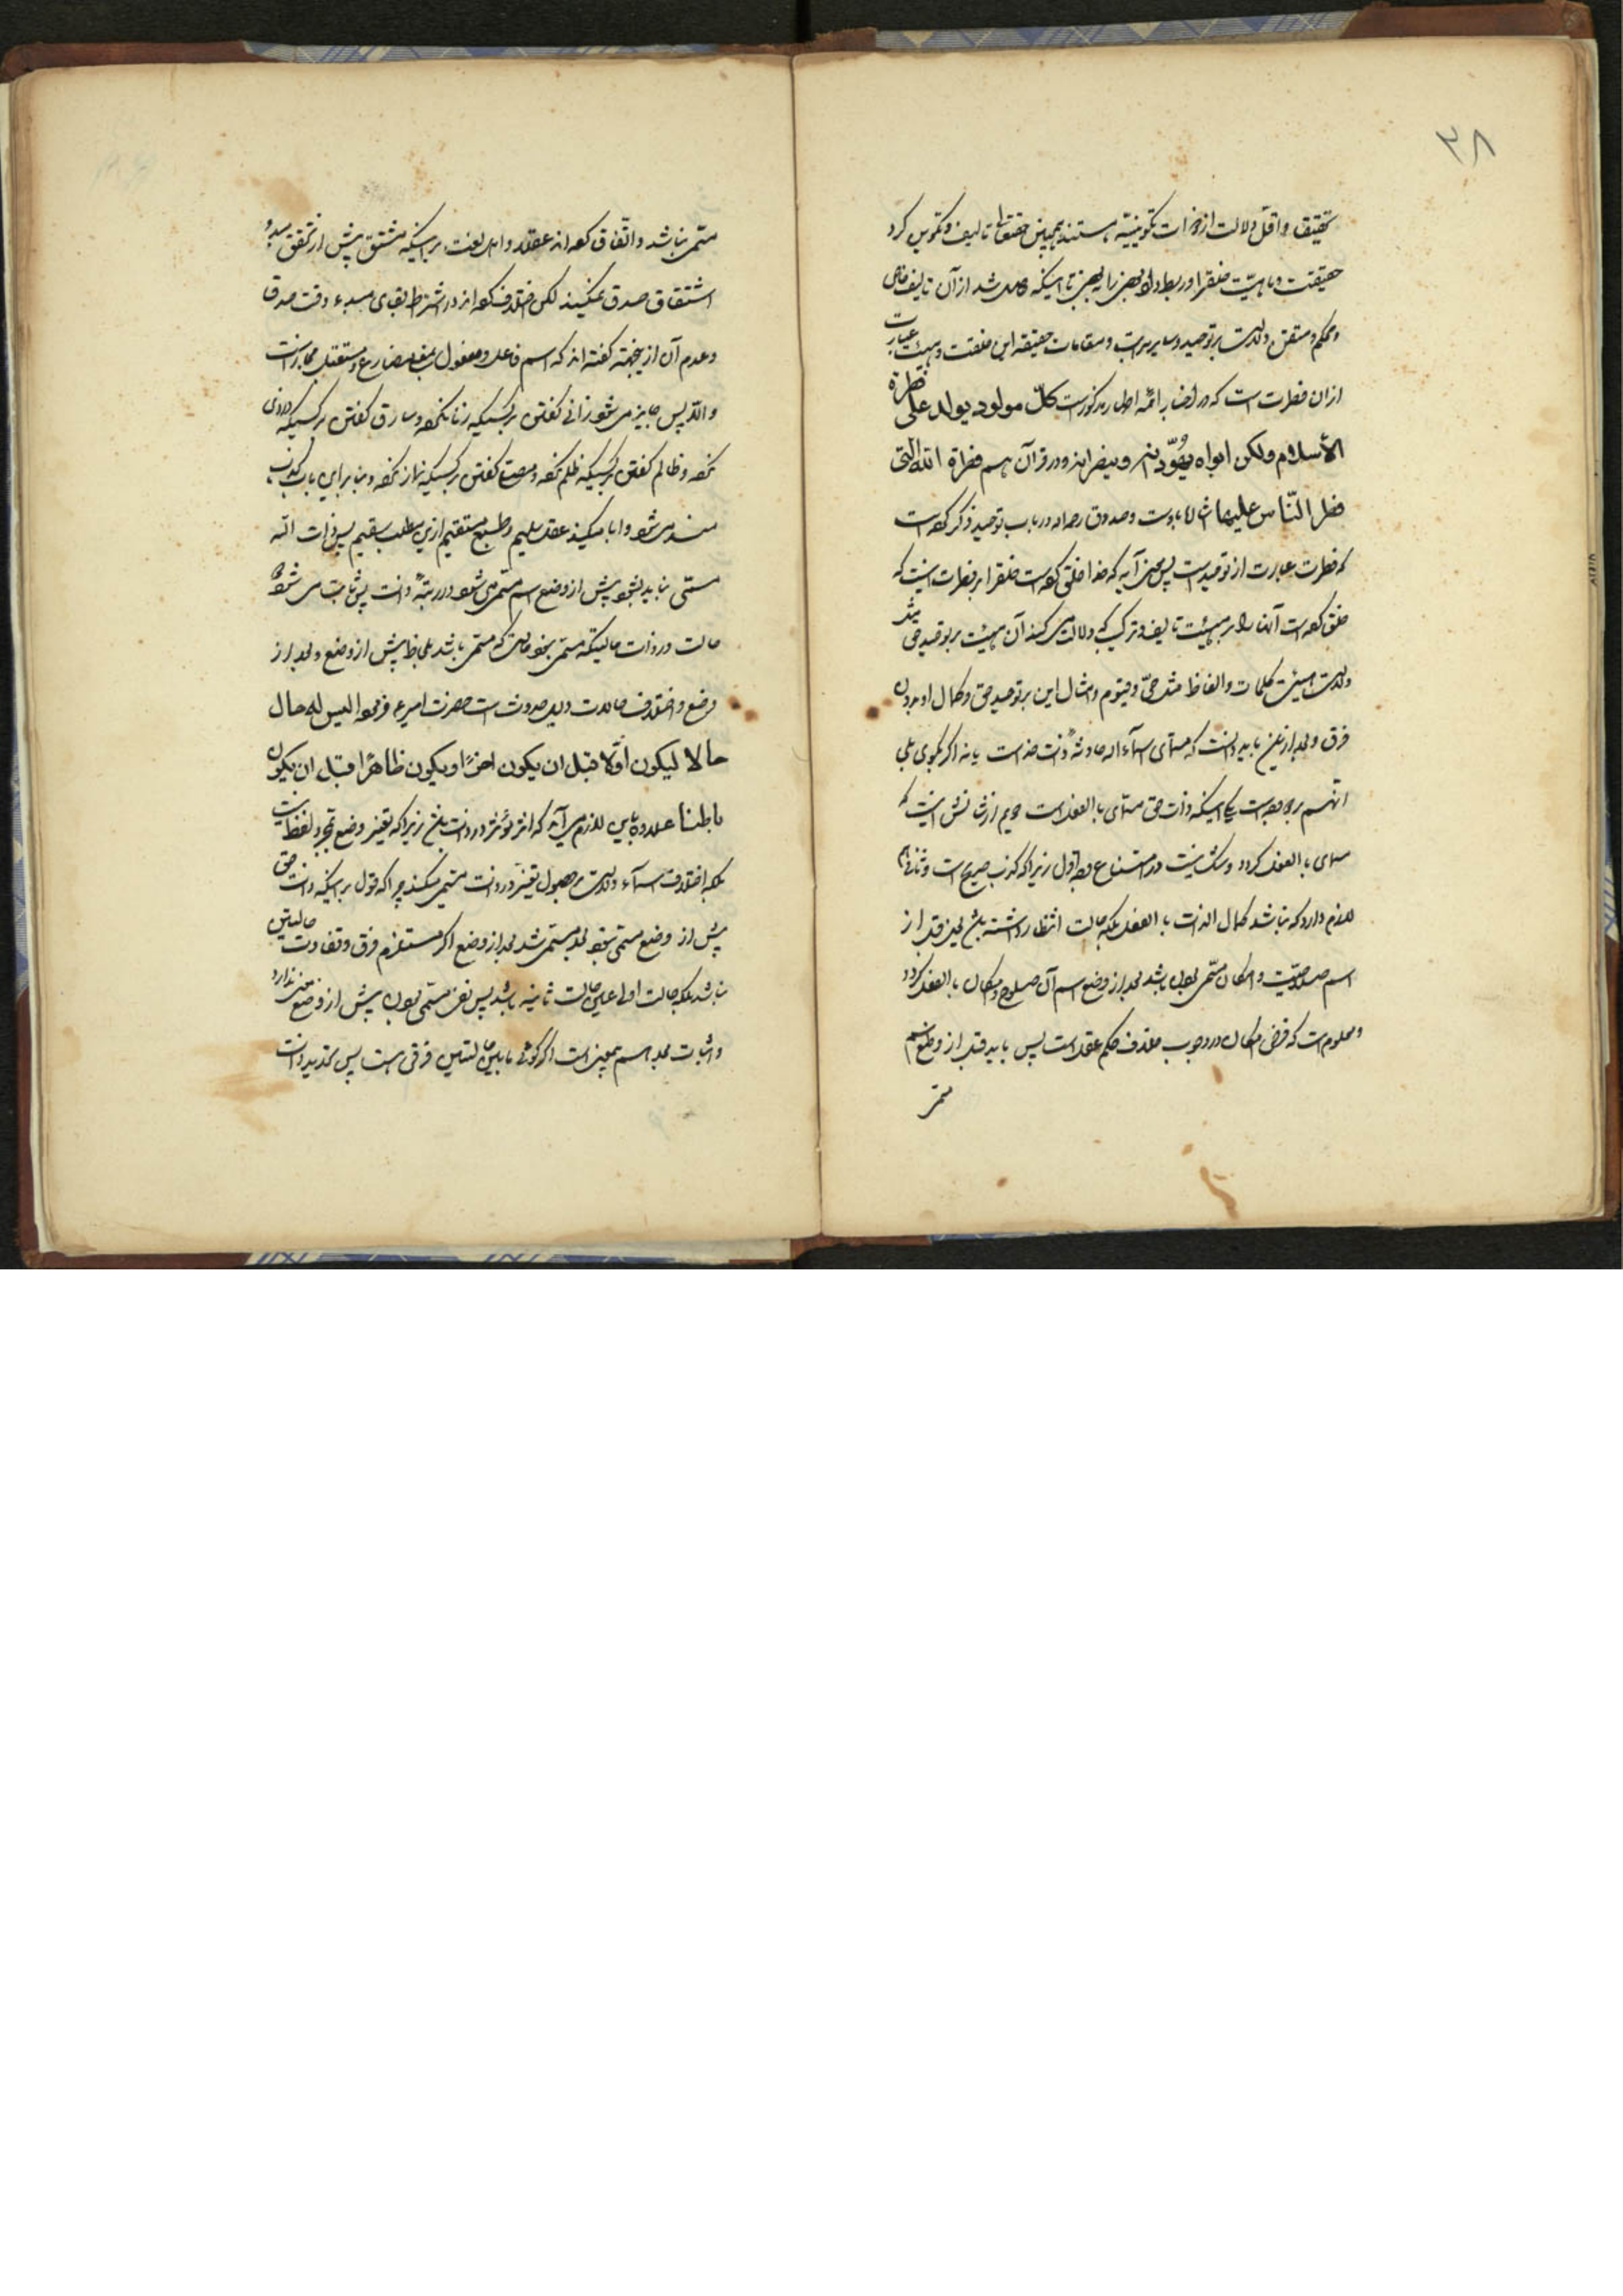 ۳۸
تحقیق و اقل دلالت از ذرات تکوینیه هستند همچنین حقتعالی تالیف و تکوین کرد
حقیقت و ماهیت خلقرا و ربط داد بعضی را ببعضی تا اینکه حاصل شد از آن تالیف خاص
و محکم و متقن دلالت بر توحید و سایر مراتب و مقامات حقیقه این خلقت و هیئت عبارت
از آن فطرت است که در اخبار ائمه اطهار مذکور است کلّ مولود یولد علی فطرة
الأسلام ولکن ابواه یهوّدانه و ینصرانه و در قرآن هم فطرة الله التی
فطر النّاس علیها شاهد بر اوست و صدوق رحمه الله در باب توحید ذکر کرده است
که فطرت عبارت از توحید است پس معنی آیه که خدا خلق کرده است خلقرا بر فطرت اینست که
خلق کرده است آنها را بر هیئت تالیف و ترکیبی که دلالت میکند آن هیئت بر توحید حق مثل
دلالت هیئت کلمات و الفاظ مثل حیّ و قیوم و امثال این بر توحید حق و کمال او بدون
فرق و بعد از این باید دانست که مسمای اسماء الله حادثه ذات خداست یا نه اگر بگوی بلی
آنهم بر دو وجه است یکی اینکه ذات حق مسمای بالفعل است دویم از شانش اینست که
مسمای بالفعل گردد و شک نیست در امتناع وجه اول زیرا که کذب صریح است و ثانی هم
لازم دارد که نباشد کمال الذات بالفعل بلکه حالت انتظار داشته باشد یعنی قبل از
اسم صلاحیّت و امکان مسمّی بودن باشد بعد از وضع اسم آن صلوح و امکان بالفعل گردد
و معلوم است که فرض امکان در وجوب خلاف حکم عقل است پس باید قبل از وضع اسم
مسمی
مسمی نباشد و اتفاق کرده اند عقلا و اهل لغت بر اینکه مشتق پیش از تحقق مبدء
اشتقاق صدق نمیکند لکن اختلاف کرده اند در اشتراط بقای مبدء وقت صدق
و عدم آن از اینجهة گفته اند که اسم فاعل و مفعول بمعنی مضارع و مستقبل مجاز است
و الا پس جایز میشود زانی گفتن بر کسیکه زنا نکرده و سارق گفتن بر کسیکه دزدی
نکرده و ظالم گفتن بر کسیکه ظلم نکرده و مصلی گفتن بر کسیکه نماز نکرده و بنابراین باب کذب
مسند میشود و ابا میکند عقل سلیم و طبع مستقیم ازین مطلب سقیم پس ذات الله
مسمّی نباید بشود پیش از وضع اسم مسمی میشود در رتبهٔ ذات پس ثابت میشود
حالت در ذات حالتیکه مسمی نبود حالتی که مسمی باشد بلحاظ پیش از وضع و بعد از
وضع و اختلاف حالات دلیل حدوث است حضرت امیر ع فرموده لیس له حال
حالا لیکون اوّلا قبل ان یکون اخرًا و یکون ظاهرًا قبل ان یکون
باطنا علاوه براین لازم می آید که اثر مؤثر در ذات باشد زیرا که تغییر وضع بمجرد لفظ نیست
بلکه اختلاف اسماء دلالت بر حصول تغییر در ذات مسمی میکند چرا که قول بر اینکه ذات حق
پیش از وضع مسمی نبود بعد مسمی شد بعد از وضع اگر مستلزم فرق و تفاوت حالتین
نباشد بلکه حالت اولی عین حالت ثانیه باشد پس نفی مسمی بودن پیش از وضع معنی ندارد
و اثبات بعد اسم همچنین است اگر گوئی ما بین حالتین فرقی هست پس تحدید ذات